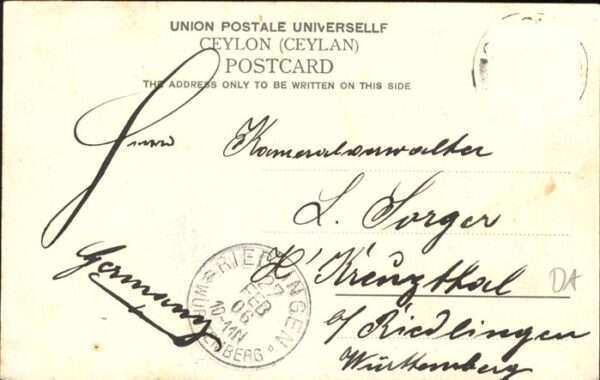 UNION POSTALE UNIVERSELLE
CEYLON (CEYLAN)
POSTCARD
THE ADDRESS ONLY TO BE WRITTEN ON THIS SIDE
Herrn
Kameralverwalter
L. Sorger
H' Kreuzthal
Germany
a/ Riedlingen
Württemberg
RIEDLINGEN
27
FEB
06
10-11N
WÜRTTEMBERG
DA